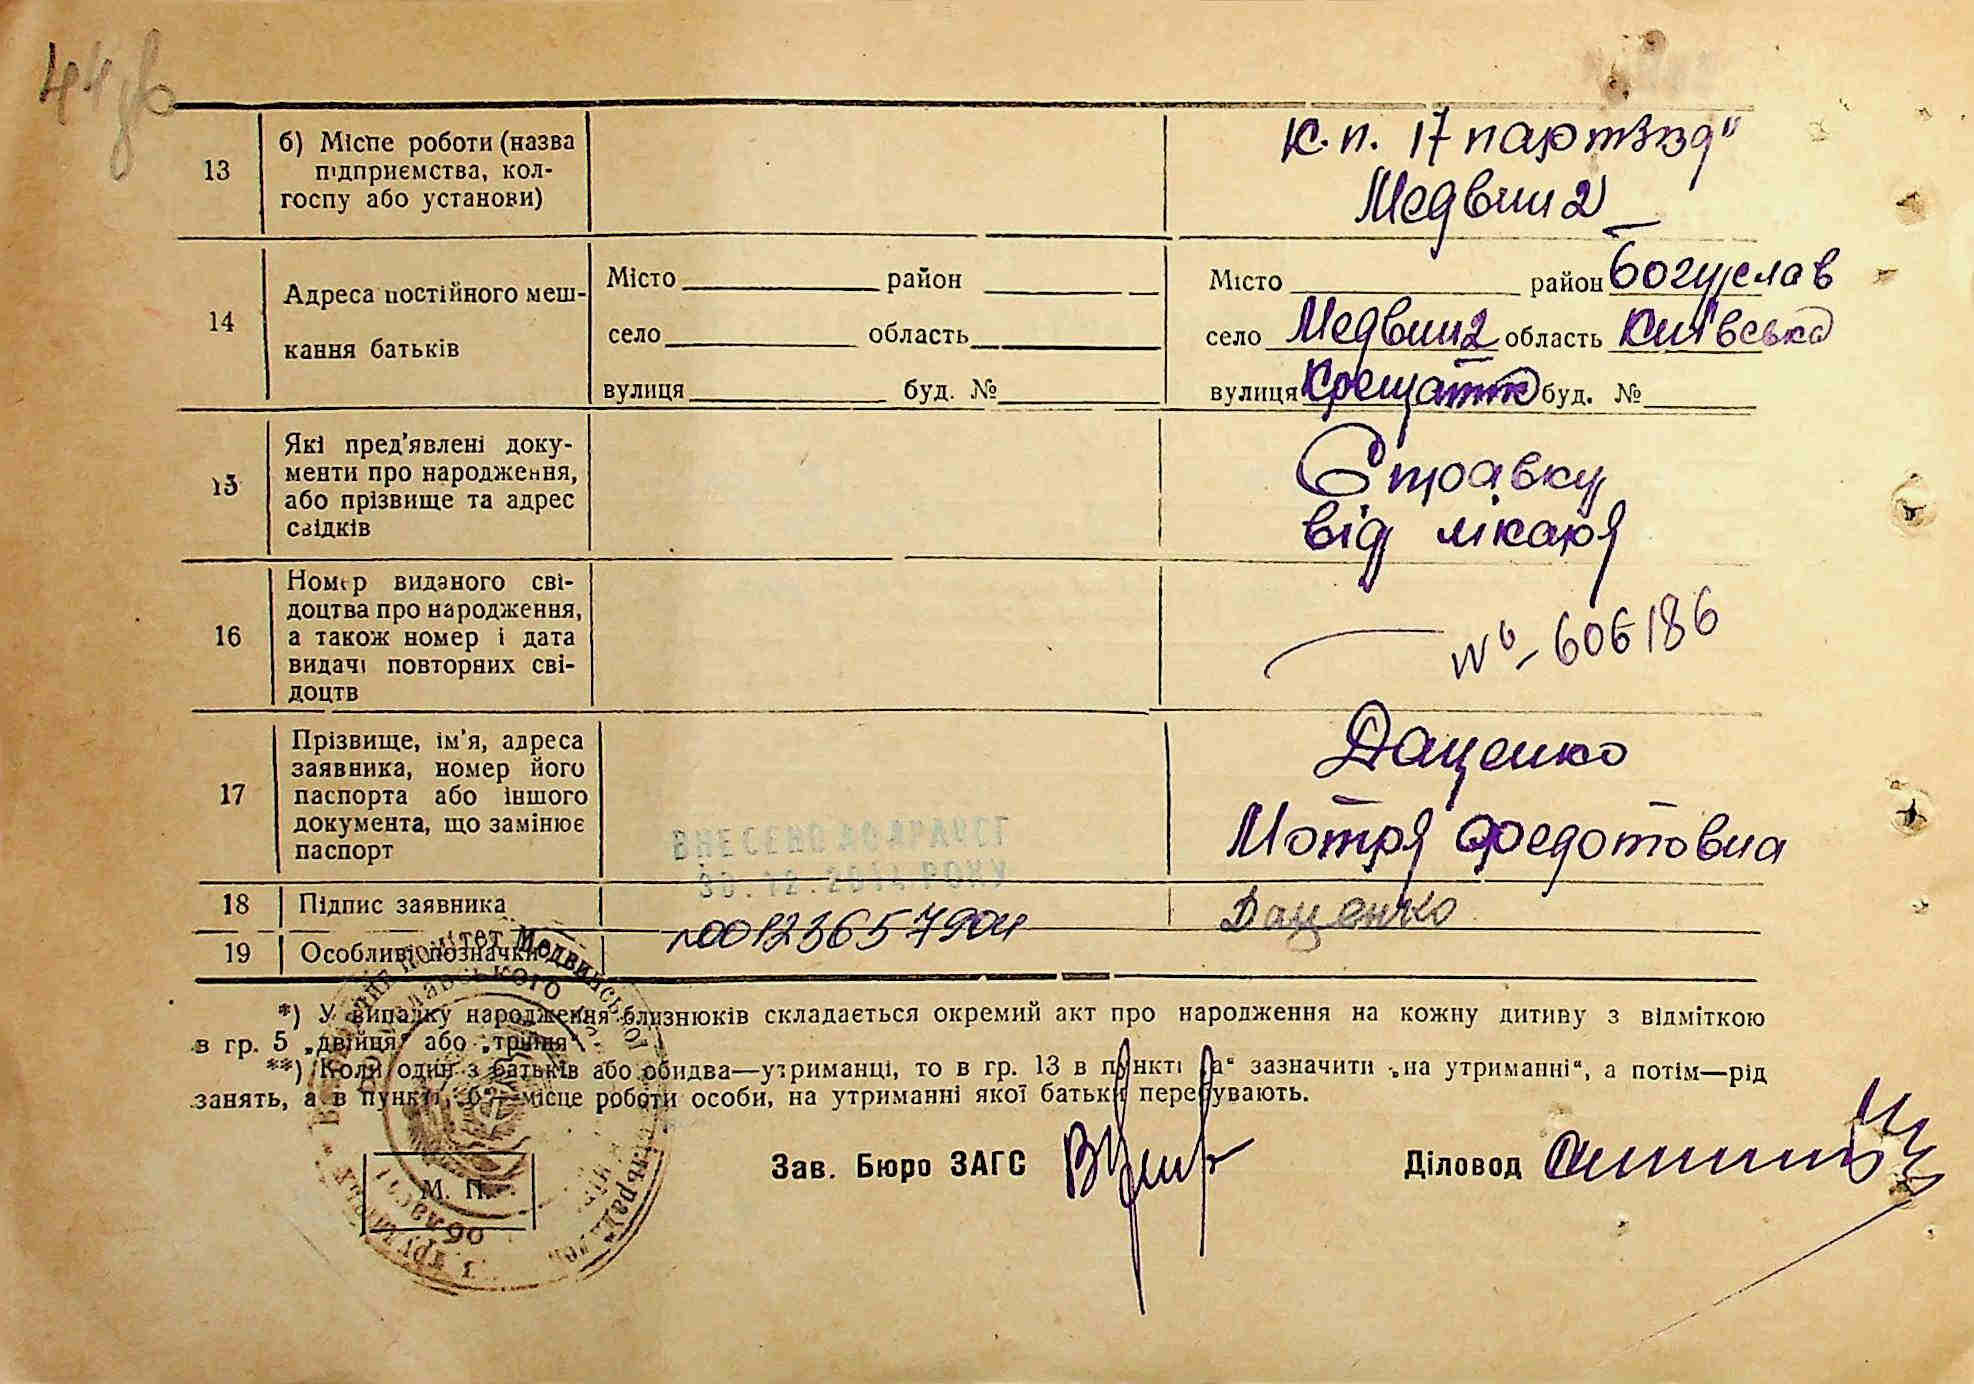 44 зв
13
б) Місце роботи (назва
підприємства, кол-
госпу або установи)
К.п. 17 партзїзд"
Медвин 2
14
Адреса постійного меш-
кання батьків
Місто ______ район ______
село ______ область ______
вулиця ______ буд. № ______
Місто ______ район Богуслав
село Медвин 2 область Київська
вулиця Крещатик буд. № ______
15
Які пред'явлені доку-
менти про народження,
або прізвище та адрес
свідків
Справку
від лікаря
16
Номер виданого сві-
доцтва про народження,
а також номер і дата
видачі повторних сві-
доцтв
№ - 606186
17
Прізвище, ім'я, адреса
заявника, номер його
паспорта або іншого
документа, що замінює
паспорт
Даценко
Мотря Федотовна
ВНЕСЕНО ДО ДРАЦСГ
30.12.2014 РОКУ
18 Підпис заявника
Даценко
19 Особливі позначки
00123657904
*) У випадку народження близнюків складається окремий акт про народження на кожну дитину з відміткою
в гр. 5 „двійня" або „трійня".
**) Коли один з батьків або обидва—утриманці, то в гр. 13 в пункті „а" зазначити „на утриманні", а потім—рід
занять, а в пункті „б"—місце роботи особи, на утриманні якої батьки перебувають.
Зав. Бюро ЗАГС
Діловод
М. П.